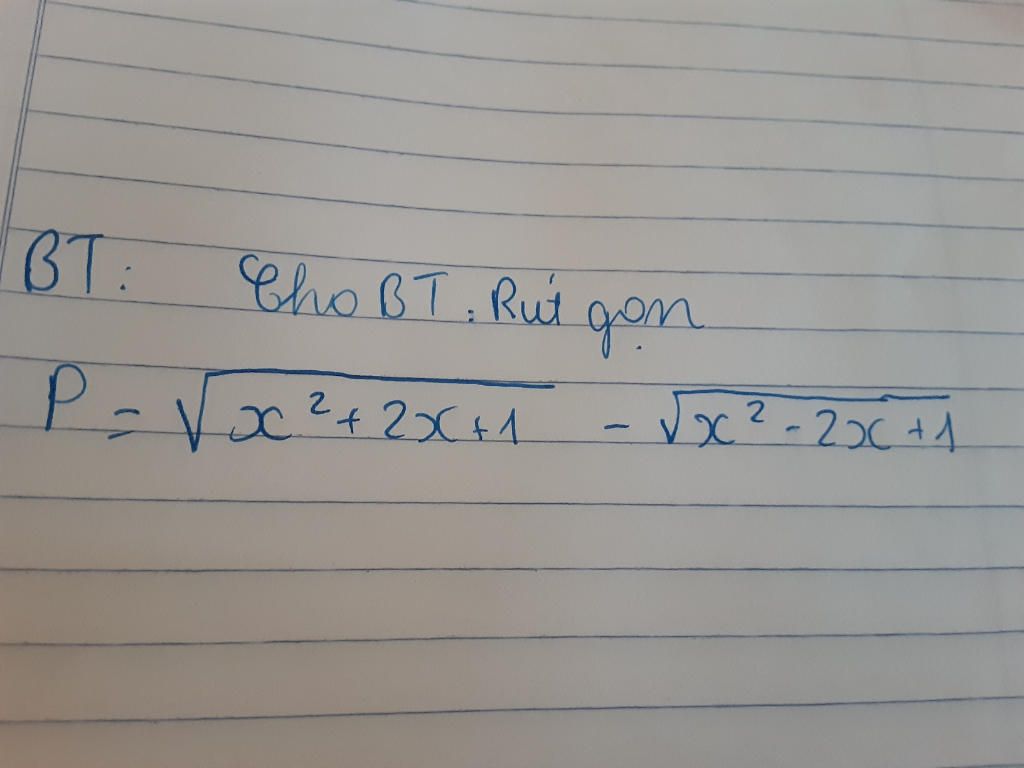 BT: Cho BT: Rút gọn
P = √x² + 2x + 1 - √x² - 2x + 1